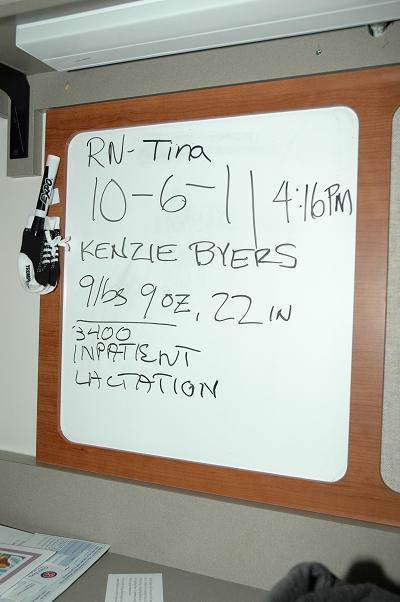 RN- Tina
10-6-11 4:16PM
KENZIE BYERS
9lbs 9oz, 22 IN
3400
INPATIENT
LACTATION
EXPO